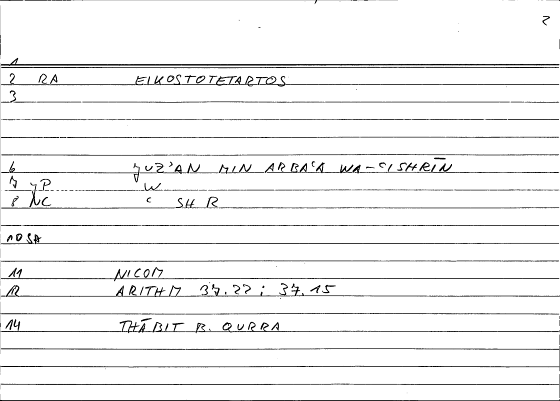 2
1
2 RA EIKOSTOTETARTOS
3
6 ǦUZʾAN MIN ARBAʿA WA-ʿISHRĪN
7 JP W
8 NC ʿ SH R
10 SA
11 NICOM
12 ARITHM 37.22 ; 37.15
14 THĀBIT B. QURRA